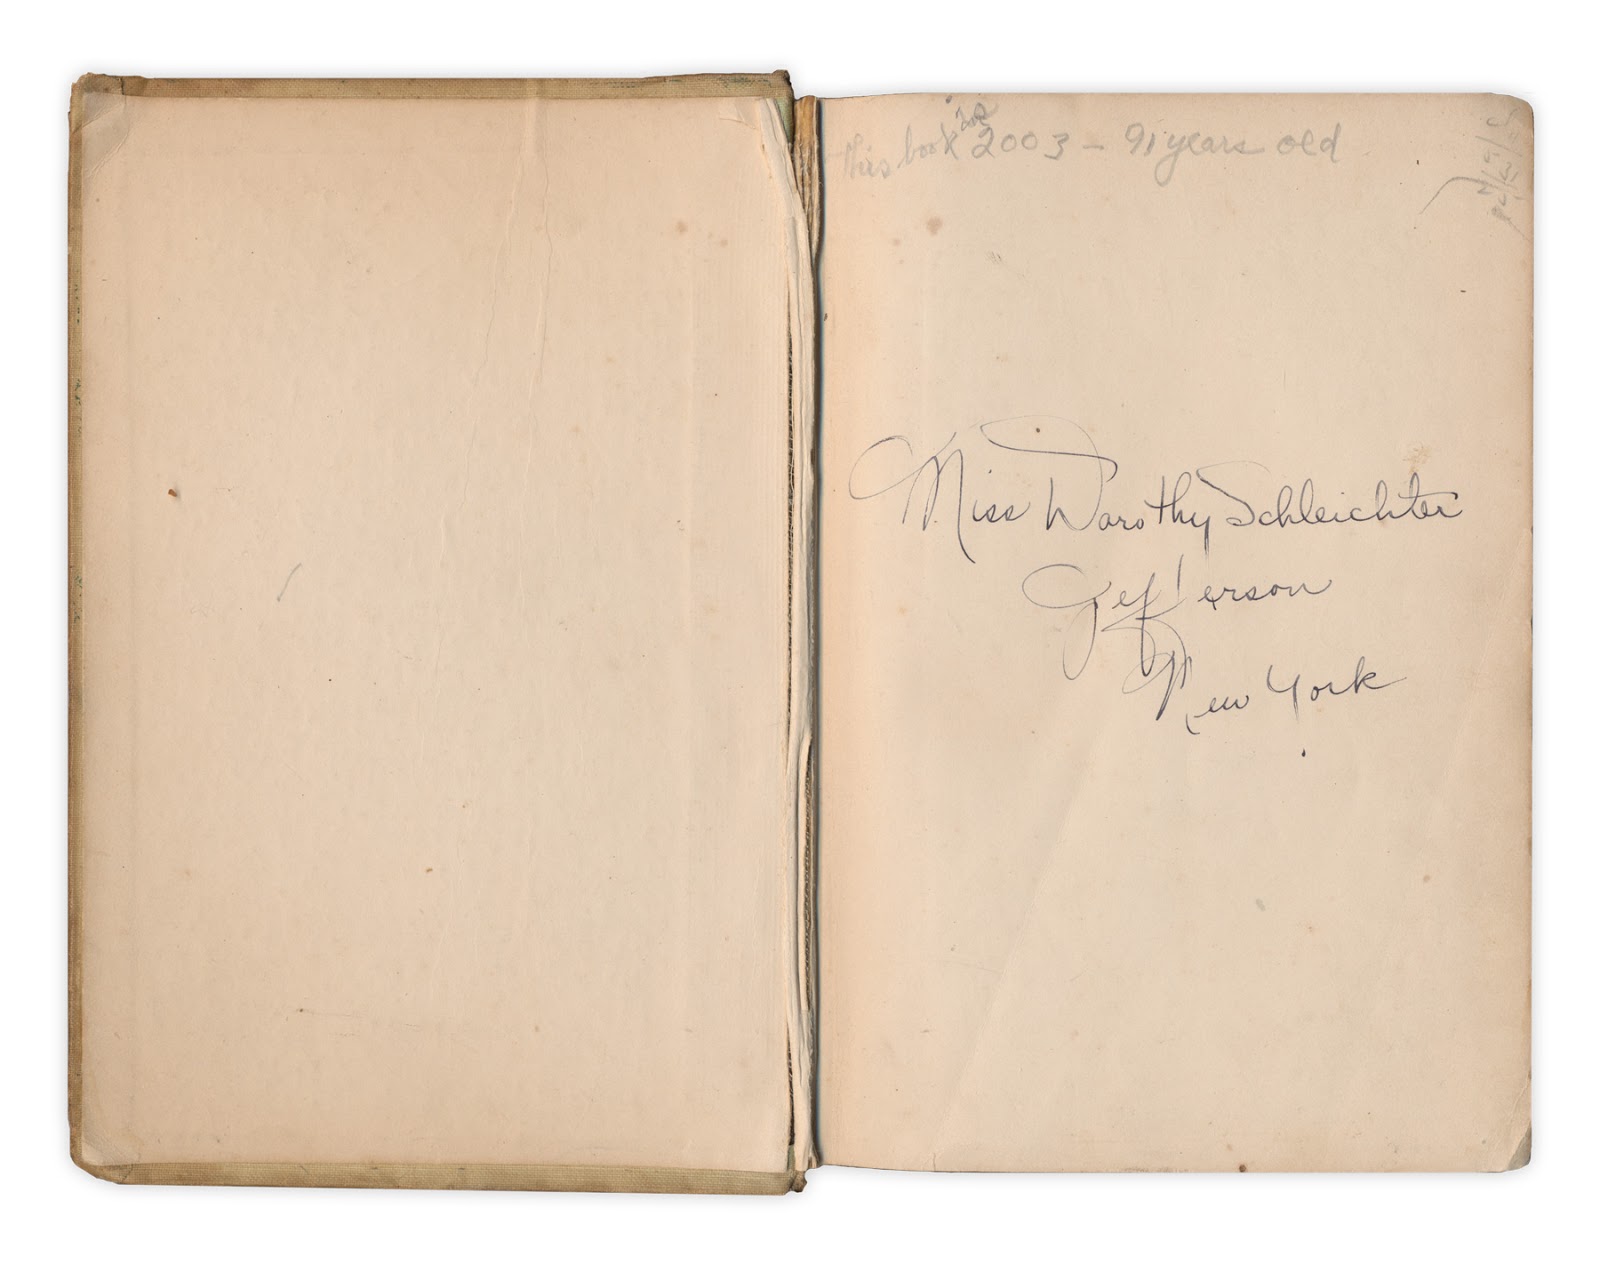 this book is 2003 - 91 years old
Miss Dorothy Schleichter
Jefferson
New York